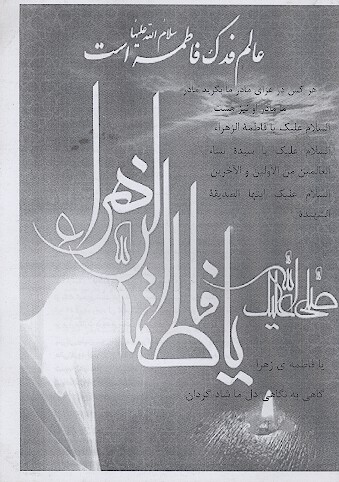 عالم فدک فاطمه سلام الله علیها است
هر کس در عزای مادر ما بگرید مادر
ما مادر او نیز هست
السلام علیک یا فاطمة الزهراء
السلام علیک یا سیدة نساء
العالمین من الأولین و الآخرین
السلام علیک ایتها الصدیقة
الشهیدة
یا فاطمة الزهرا
صلی الله علیک
یا فاطمه ی زهرا
گاهی به نگاهی دل ما شاد گردان